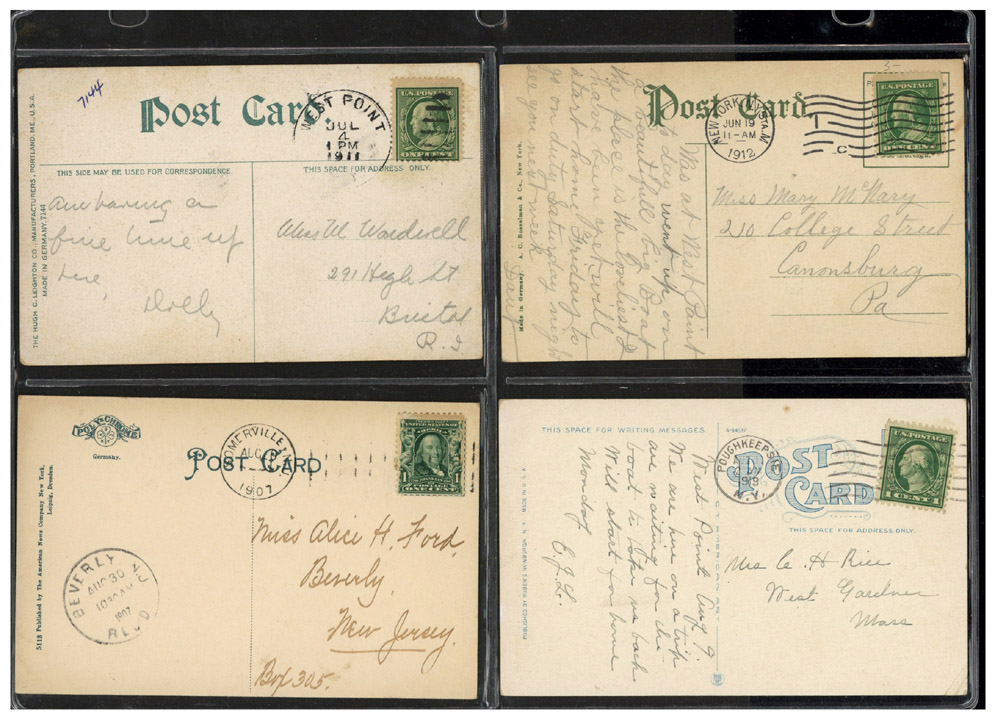 7144
Post Card
WEST POINT
JUL
4
1 PM
1911
U.S. POSTAGE
ONE CENT
THIS SIDE MAY BE USED FOR CORRESPONDENCE.
THIS SPACE FOR ADDRESS ONLY.
THE HUGH C. LEIGHTON CO., MANUFACTURERS, PORTLAND, ME., U.S.A.
MADE IN GERMANY. 7144
Am having a
fine time up
here,
Dolly
Miss M Wardwell
291 High St
Bristol
R. I
Post Card
NEW YORK, N.Y. STA. M
JUN 19
11-AM
1912
U.S. POSTAGE
ONE CENT
Made in Germany. A. C. Bosselman & Co., New York.
Was at West Point
to day went up on
a beautifull big Boat
the place is the loveliest I
have seen yet will
start home Friday to
go on duty Saturday night
see you next week
Miss Mary McKary
210 College Street
Canonsburg
Pa
POLY-CHROME
Germany.
5118 Published by The American News Company New York,
Leipzig, Dresden.
POST CARD
SOMERVILLE
1907
UNITED STATES OF
AMERICA
1
1
POSTAGE
ONE CENT
BEVERLY
AUG 30
1907
REC'D
Miss Alice H. Ford,
Beverly,
New Jersey.
Box 305.
THIS SPACE FOR WRITING MESSAGES
POST
CARD
POUGHKEEPSIE
N.Y.
U.S. POSTAGE
1 CENT 1
THIS SPACE FOR ADDRESS ONLY.
West Point Aug 9.
We are here on a trip
are waiting for the
boat to take us back
Will start for home
Monday E.J.L.
Mrs C. H Rice
West Gardner
Mass